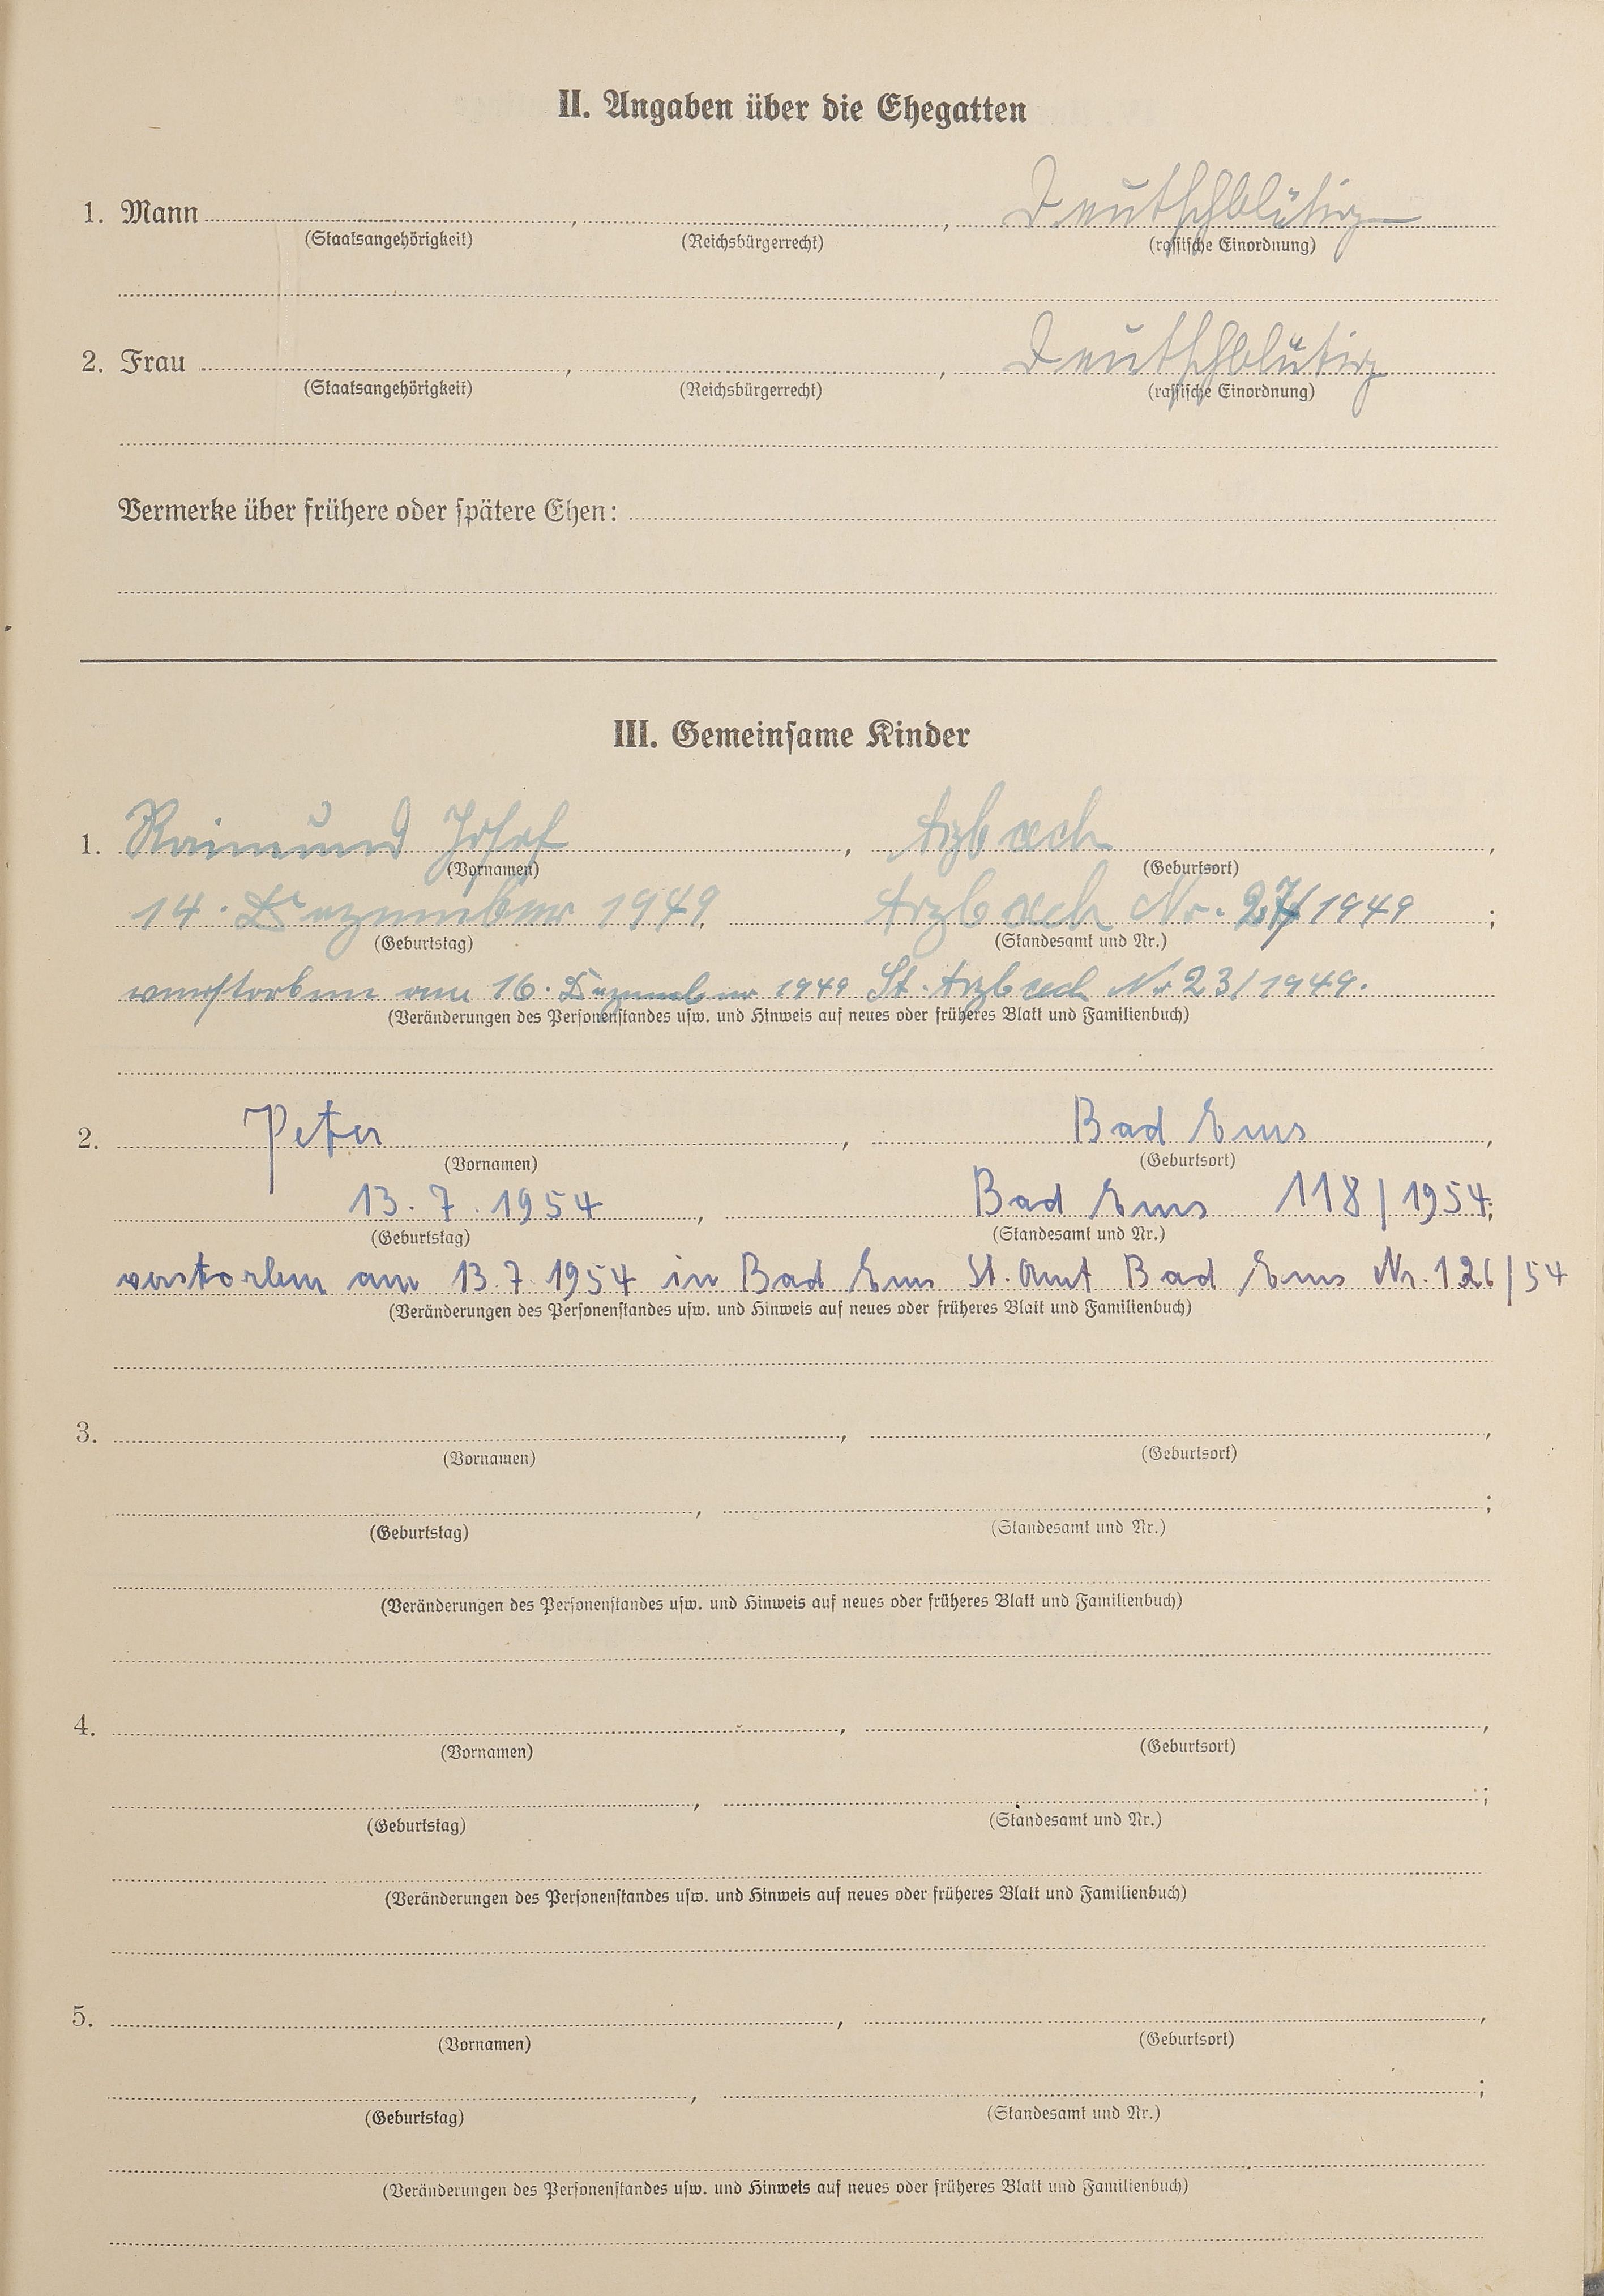 II. Angaben über die Ehegatten
1. Mann , , Deutschblütig
(Staatsangehörigkeit) (Reichsbürgerrecht) (rassische Einordnung)
2. Frau , , Deutschblütig
(Staatsangehörigkeit) (Reichsbürgerrecht) (rassische Einordnung)
Vermerke über frühere oder spätere Ehen:
III. Gemeinsame Kinder
1. Raimund Josef , Arzbach ,
(Vornamen) (Geburtsort)
14. Dezember 1949, Arzbach Nr. 27/1949 ;
(Geburtstag) (Standesamt und Nr.)
verstorben am 16. Dezember 1949 St. Arzbach Nr 23/1949.
(Veränderungen des Personenstandes usw. und Hinweis auf neues oder früheres Blatt und Familienbuch)
2. Peter , Bad Ems ,
(Vornamen) (Geburtsort)
13. 7. 1954 , Bad Ems 118/1954;
(Geburtstag) (Standesamt und Nr.)
verstorben am 13.7.1954 in Bad Ems St. Amt Bad Ems Nr. 126/54
(Veränderungen des Personenstandes usw. und Hinweis auf neues oder früheres Blatt und Familienbuch)
3. , ,
(Vornamen) (Geburtsort)
, ;
(Geburtstag) (Standesamt und Nr.)
(Veränderungen des Personenstandes usw. und Hinweis auf neues oder früheres Blatt und Familienbuch)
4. , ,
(Vornamen) (Geburtsort)
, ;
(Geburtstag) (Standesamt und Nr.)
(Veränderungen des Personenstandes usw. und Hinweis auf neues oder früheres Blatt und Familienbuch)
5. , ,
(Vornamen) (Geburtsort)
, ;
(Geburtstag) (Standesamt und Nr.)
(Veränderungen des Personenstandes usw. und Hinweis auf neues oder früheres Blatt und Familienbuch)